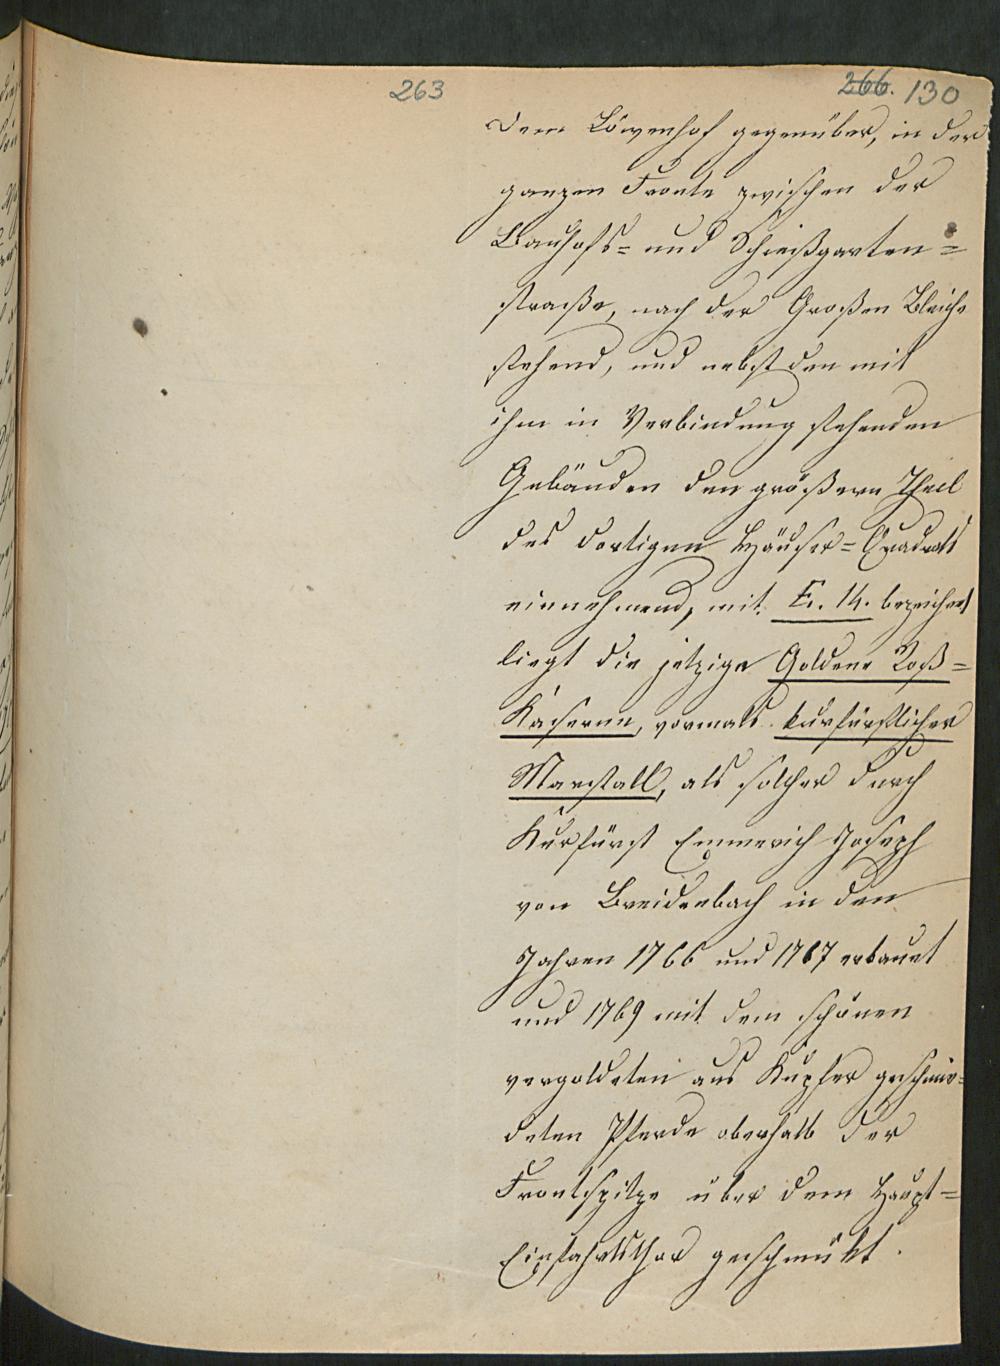 263
266. 130
Dem Löwenhof gegenüber, in der
ganzen Fronte zwischen der
Bauhofs= und Schießgarten=
straße, nach der Großen Bleiche
stehend, und nebst den mit
ihm in Verbindung stehenden
Gebäuden den größern Theil
des dortigen Häuser=Quadrats
einnehmend, mit E. 14. bezeichnet
liegt die jetzige Goldene Roß=
Kaserne, vormals kurfürstlicher
Marstall, als solcher durch
Kurfürst Emmerich Joseph
von Breidenbach in den
Jahren 1766 und 1767 erbauet
und 1769 mit dem schönen
vergoldeten aus Kupfer geschmie=
deten Pferde oberhalb der
Frontspitze über dem Haupt=
Einfahrtsthor geschmükt.